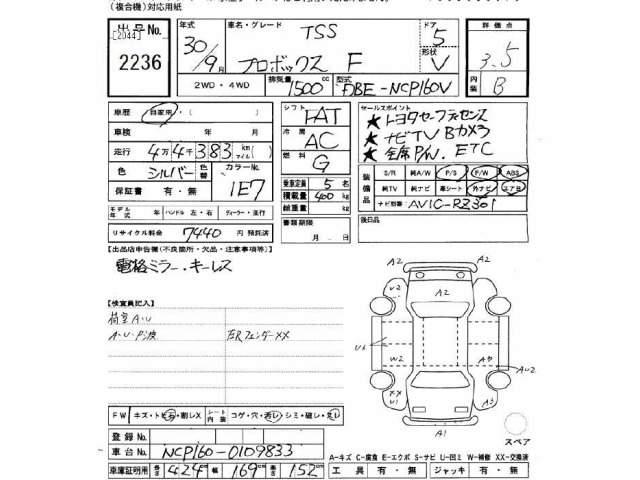 (複合機)対応用紙
出品No.
[2044]
2236
年式
30/9月
車名・グレード
TSS
プロボックス F
ドア
5
形状
V
2WD・4WD
排気量
1500cc
型式
DBE-NCP160V
評価点
3.5
内装
B
車歴
自家用・( )
車検 年 月
走行 4万4千383 km(マイル)
色 シルバー 色替
カラーNo.
1E7
保証書 有・無
モデル年式 年 ハンドル 左・右 ディーラー・並行
リサイクル料金 7440円 預託済
シフト
FAT
冷房
AC
燃料
G
乗車定員 5名
積載量 400kg
総重量 kg
書類期限
月 日
セールスポイント
★トヨタセーフティセンス
★ナビTV Bカメラ
★全席P/W. ETC
装備品
S/R 純A/W P/S P/W ABS
純TV 純ナビ 革シート 外ナビ エアB
ナビ型番 AVIC-RZ301
後日品
【出品店申告欄(不良箇所・欠品・注意事項等)】
電格ミラー・キーレス
【検査員記入】
荷室A・U
A・U・P.波 左Rフェンダー××
FW キズ・トビ石・割レX シート内張 コゲ・穴・汚レ・シミ・破レ・スレ
登録No.
車台No. NCP160-0109833
車庫証明用 長さ 424cm 幅 169cm 高さ 152cm
A2
U2
A2
A2
UX
W2
A3
AU2
XX
U1
A3
A1
スペア
A-キズ C-腐食 E-エクボ S-サビ U-凹ミ W-補修 XX-交換済
工具 有・無 ジャッキ 有・無